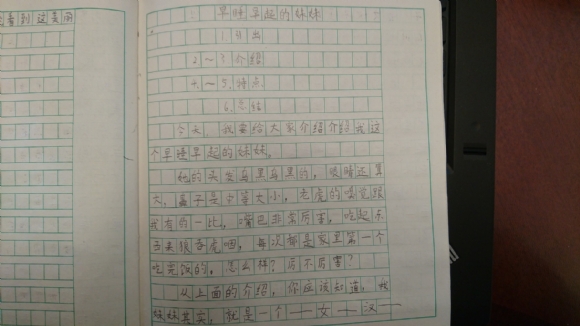 看到这美丽
早睡早起的妹妹
1.引出
2.~3.介绍
4.~5.特点
6.总结
今天,我要给大家介绍介绍我这
个早睡早起的妹妹。
她的头发乌黑乌黑的,眼睛还算
大,鼻子是中等大小,老虎的嗅觉跟
我有的一比,嘴巴非常厉害,吃起东
西来狼吞虎咽,每次都是家里第一个
吃完饭的,怎么样?厉不厉害?
从上面的介绍,你应该知道,我
妹妹其实,就是一个——女——汉——